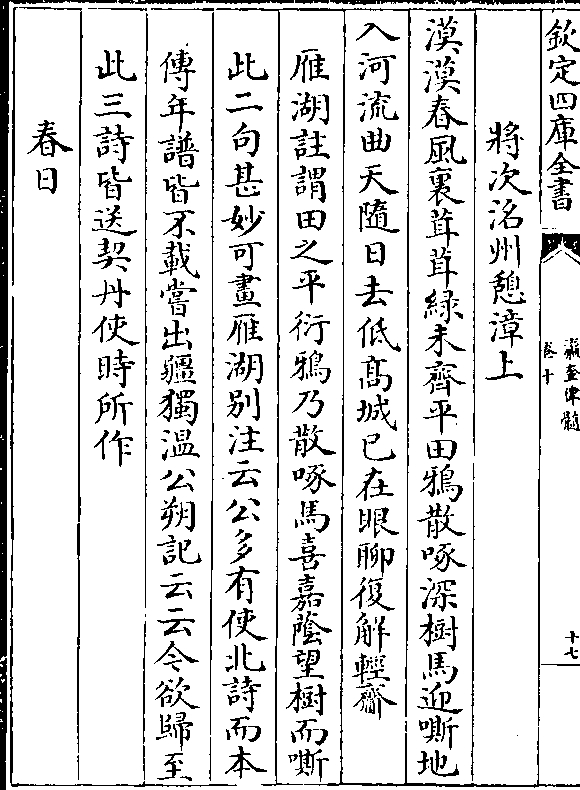 欽定四庫全書
瀛奎律髓
卷十
十七
將次洺州憩漳上
漠漠春風裏茸茸緑未齊平田鴉散啄深樹馬迎嘶地
入河流曲天隨日去低髙城已在眼聊復解輕齎
雁湖註謂田之平衍鴉乃散啄馬喜嘉蔭望樹而嘶
此二句甚妙可畫雁湖别注云公多有使北詩而本
傳年譜皆不載嘗出疆獨温公朔記云云今欲歸至
此三詩皆送契丹使時所作
春日